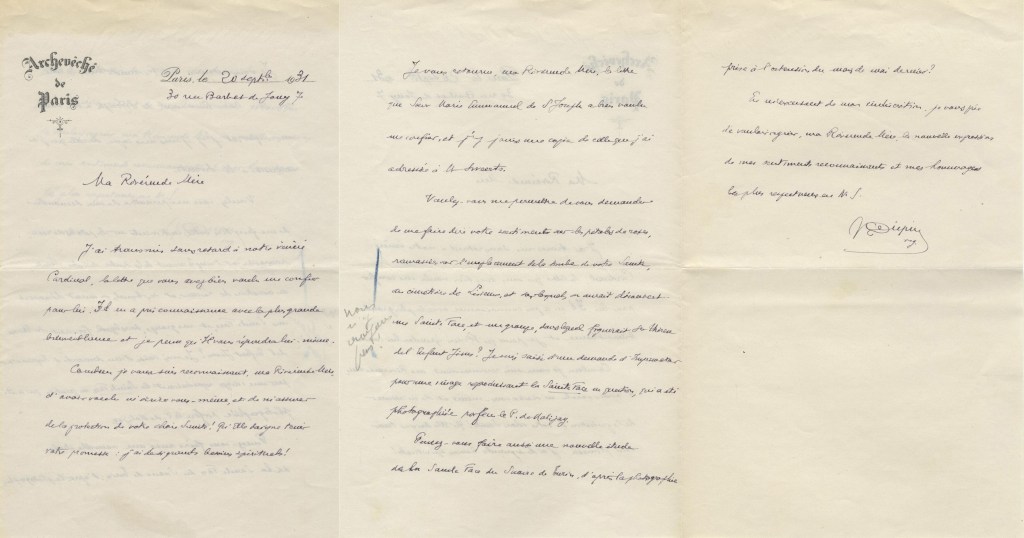 Archevêché
de
Paris
Paris, le 20 septbre 1931
30 rue Barbet de Jouy 7
Ma Révérende Mère
J'ai transmis sans retard à notre vénéré
Cardinal, la lettre que vous avez bien voulu me confier
pour lui. Il en a pris connaissance avec la plus grande
bienveillance et je pense qu'il vous répondra lui-même.
Combien je vous suis reconnaissant, ma Révérende Mère,
d'avoir voulu m'écrire vous-même, et de m'assurer
de la protection de votre chère Sainte! Qu'Elle daigne tenir
votre promesse : j'ai de si grands besoins spirituels!
Je vous retourne, ma Révérende Mère, la lettre
que Sœur Marie Emmanuel de St Joseph a bien voulu
me confier, et j'y joins une copie de celle que j'ai
adressée à
Veuillez-vous me permettre de vous demander
de me faire dire votre sentiment sur les pétales de rose,
ramassés sur l'emplacement de la tombe de votre Sainte,
au cimetière de Lisieux, et sur lesquels on aurait découvert
une Sainte Face, et un groupe, dans lequel figurerait Ste Thérèse
de l'Enfant Jésus? Je suis saisi d'une demande d'Imprimatur
pour une image reproduisant la Sainte Face en question, qui a été
photographiée par le P. de
Pensez-vous faire aussi une nouvelle étude
de la Sainte Face du Suaire de Turin, d'après la photographie
nous
n'y
croyons
pas!
prise à l'ostension du mois de mai dernier?
En m'excusant de mon indiscrétion, je vous prie
de vouloir agréer, ma Révérende Mère, la nouvelle expression
de mes sentiments reconnaissants et mes hommages
les plus respectueux en N. S.